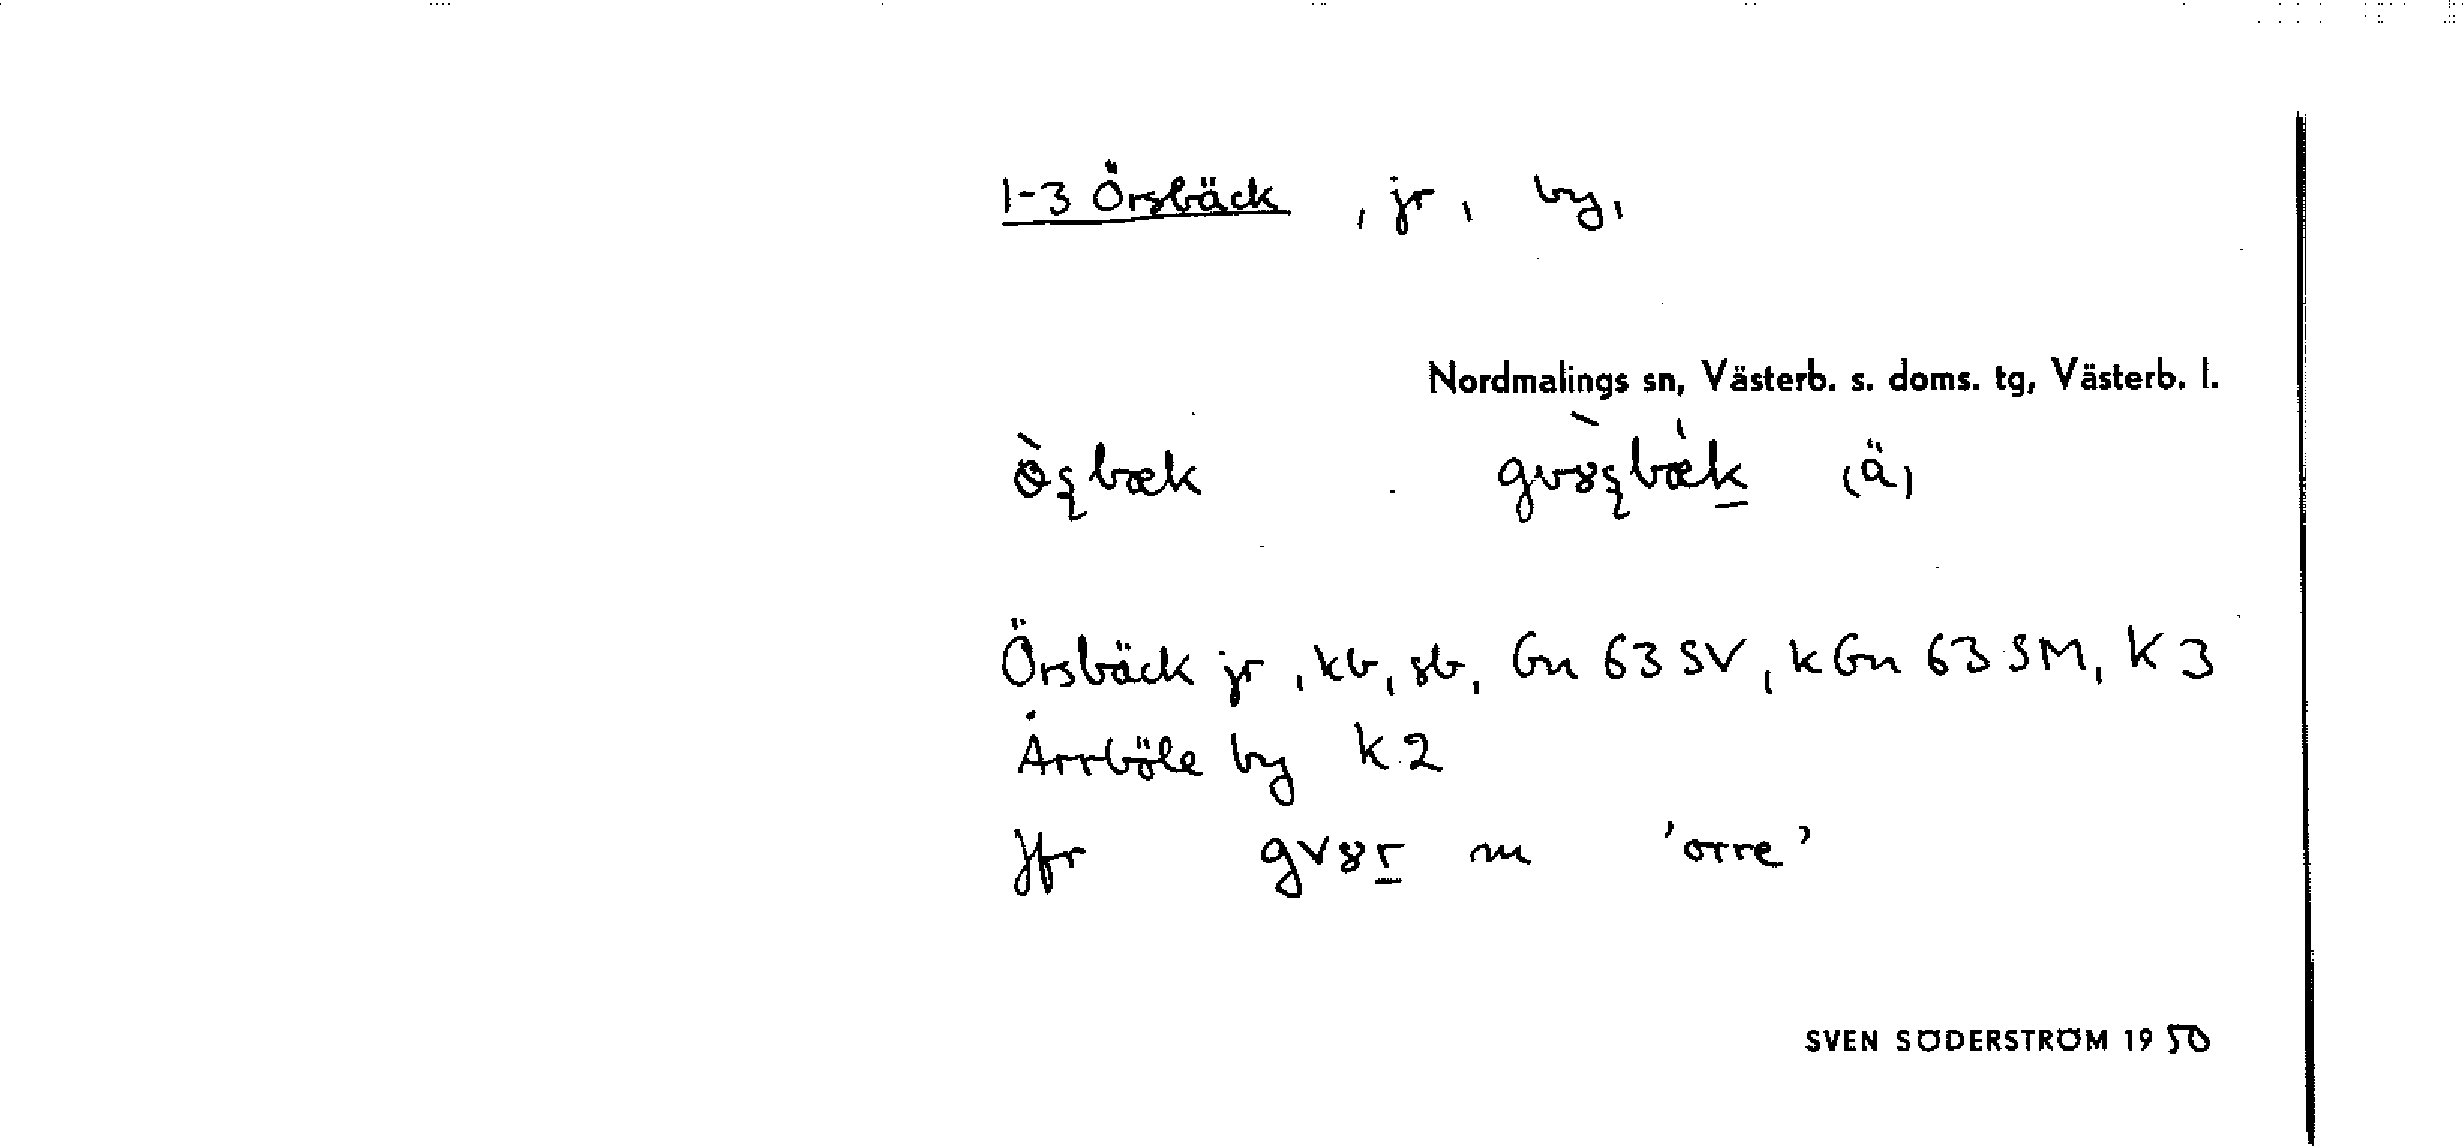 1-3 Örsbäck, jr, by,
Nordmalings sn, Västerb. s. doms. tg, Västerb. l.
(ä)
Örsbäck jr, kb, sb, Gn 63 SV, k Gn 63 SM, K 3
Arrböle by K 2
Jfr m 'orre'
SVEN SÖDERSTRÖM 1950